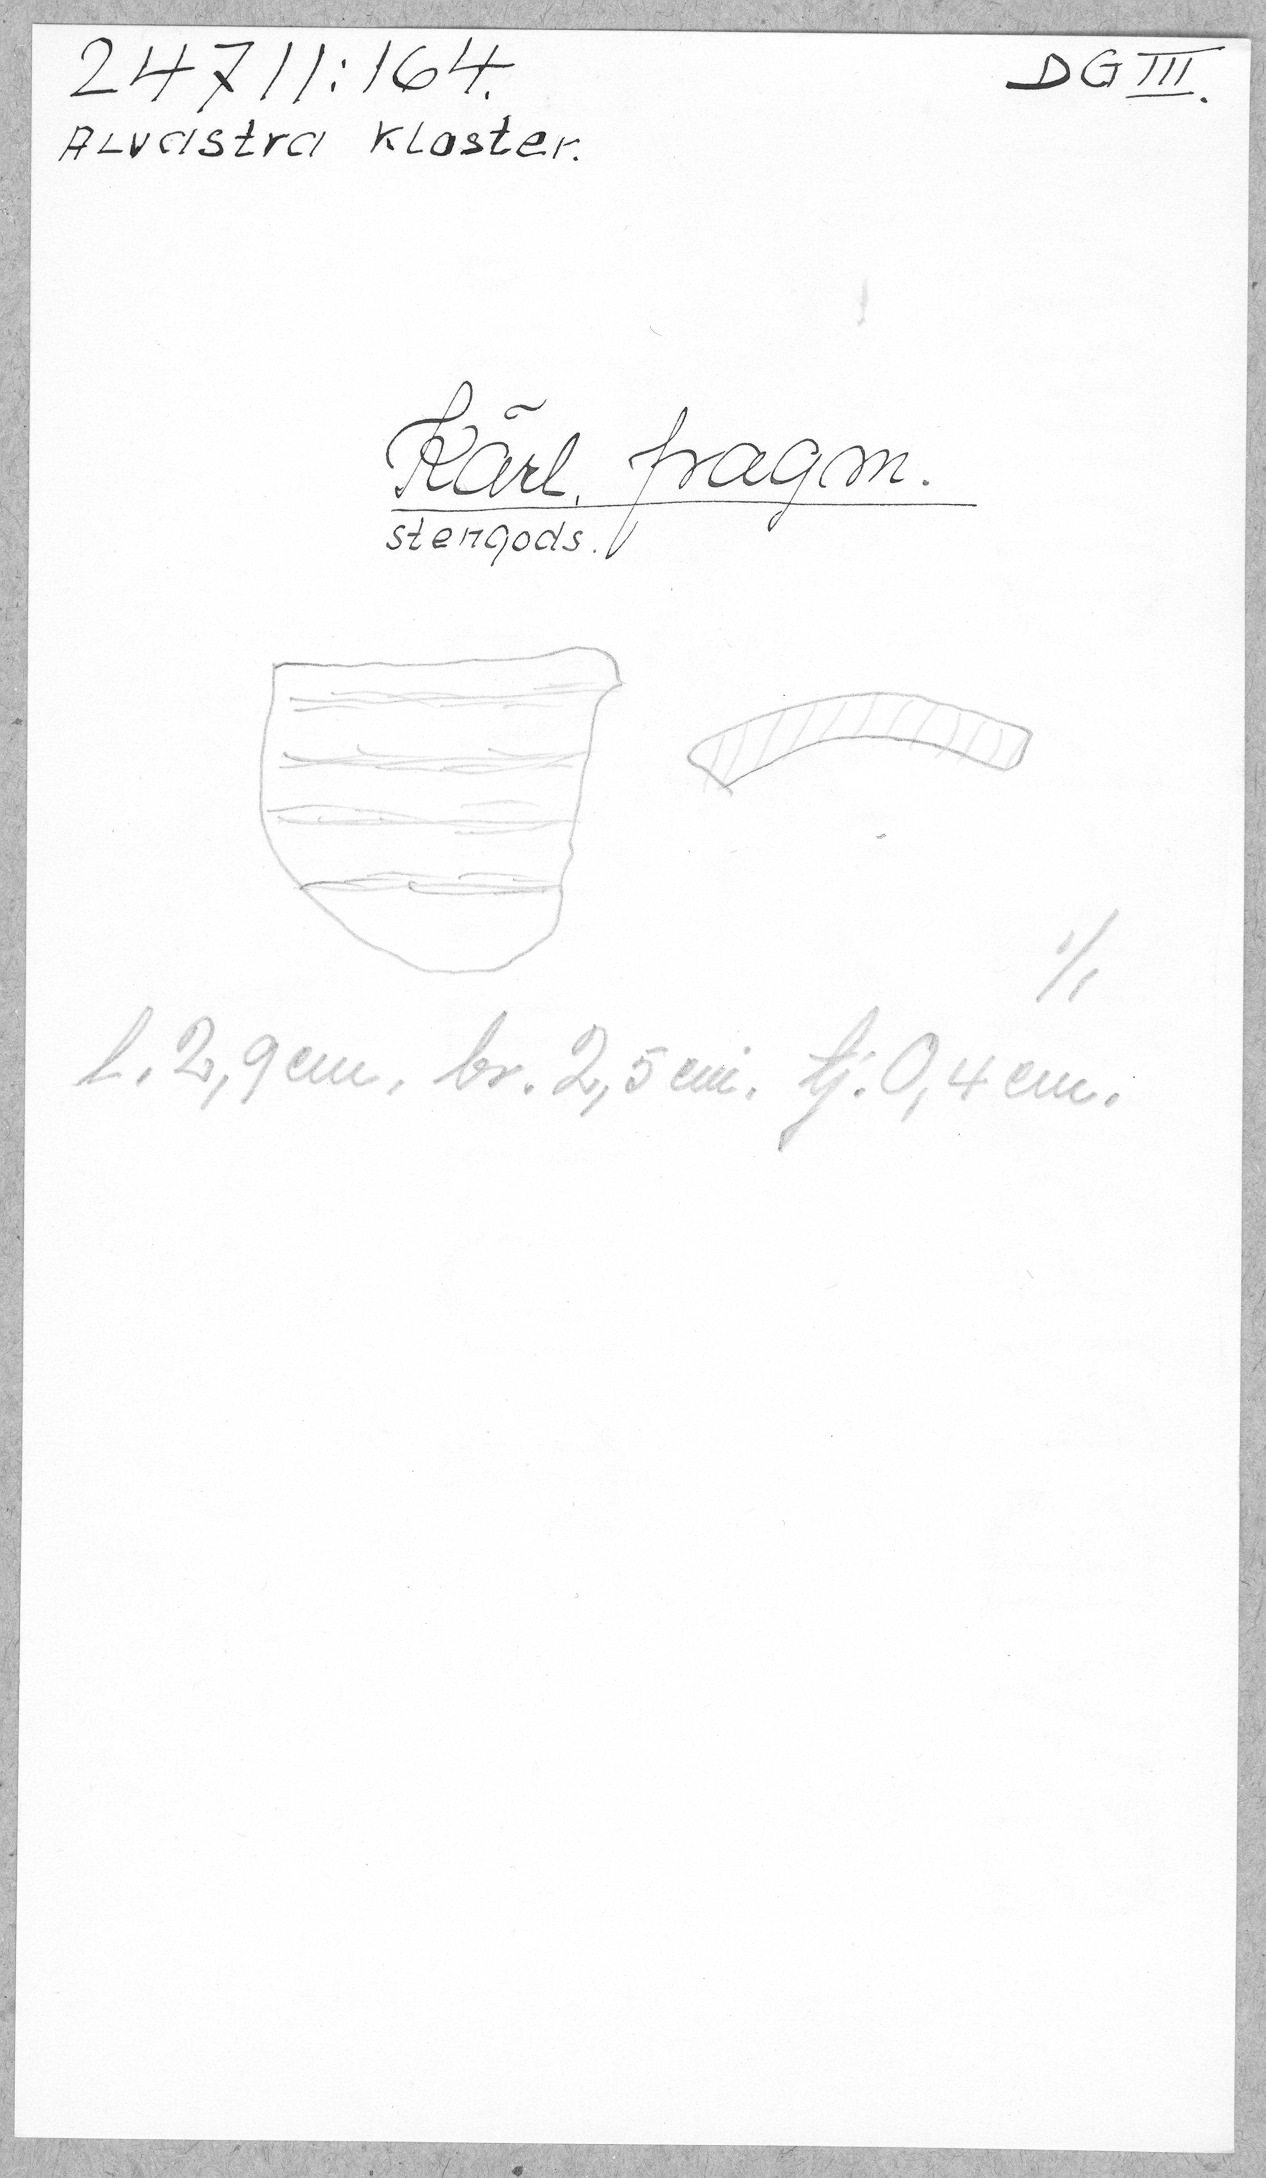 24711:164.
DG III.
Alvastra Kloster.
Kärl, fragm.
stengods.
1/1
l. 2,9 cm. br. 2,5 cm. tj. 0,4 cm.